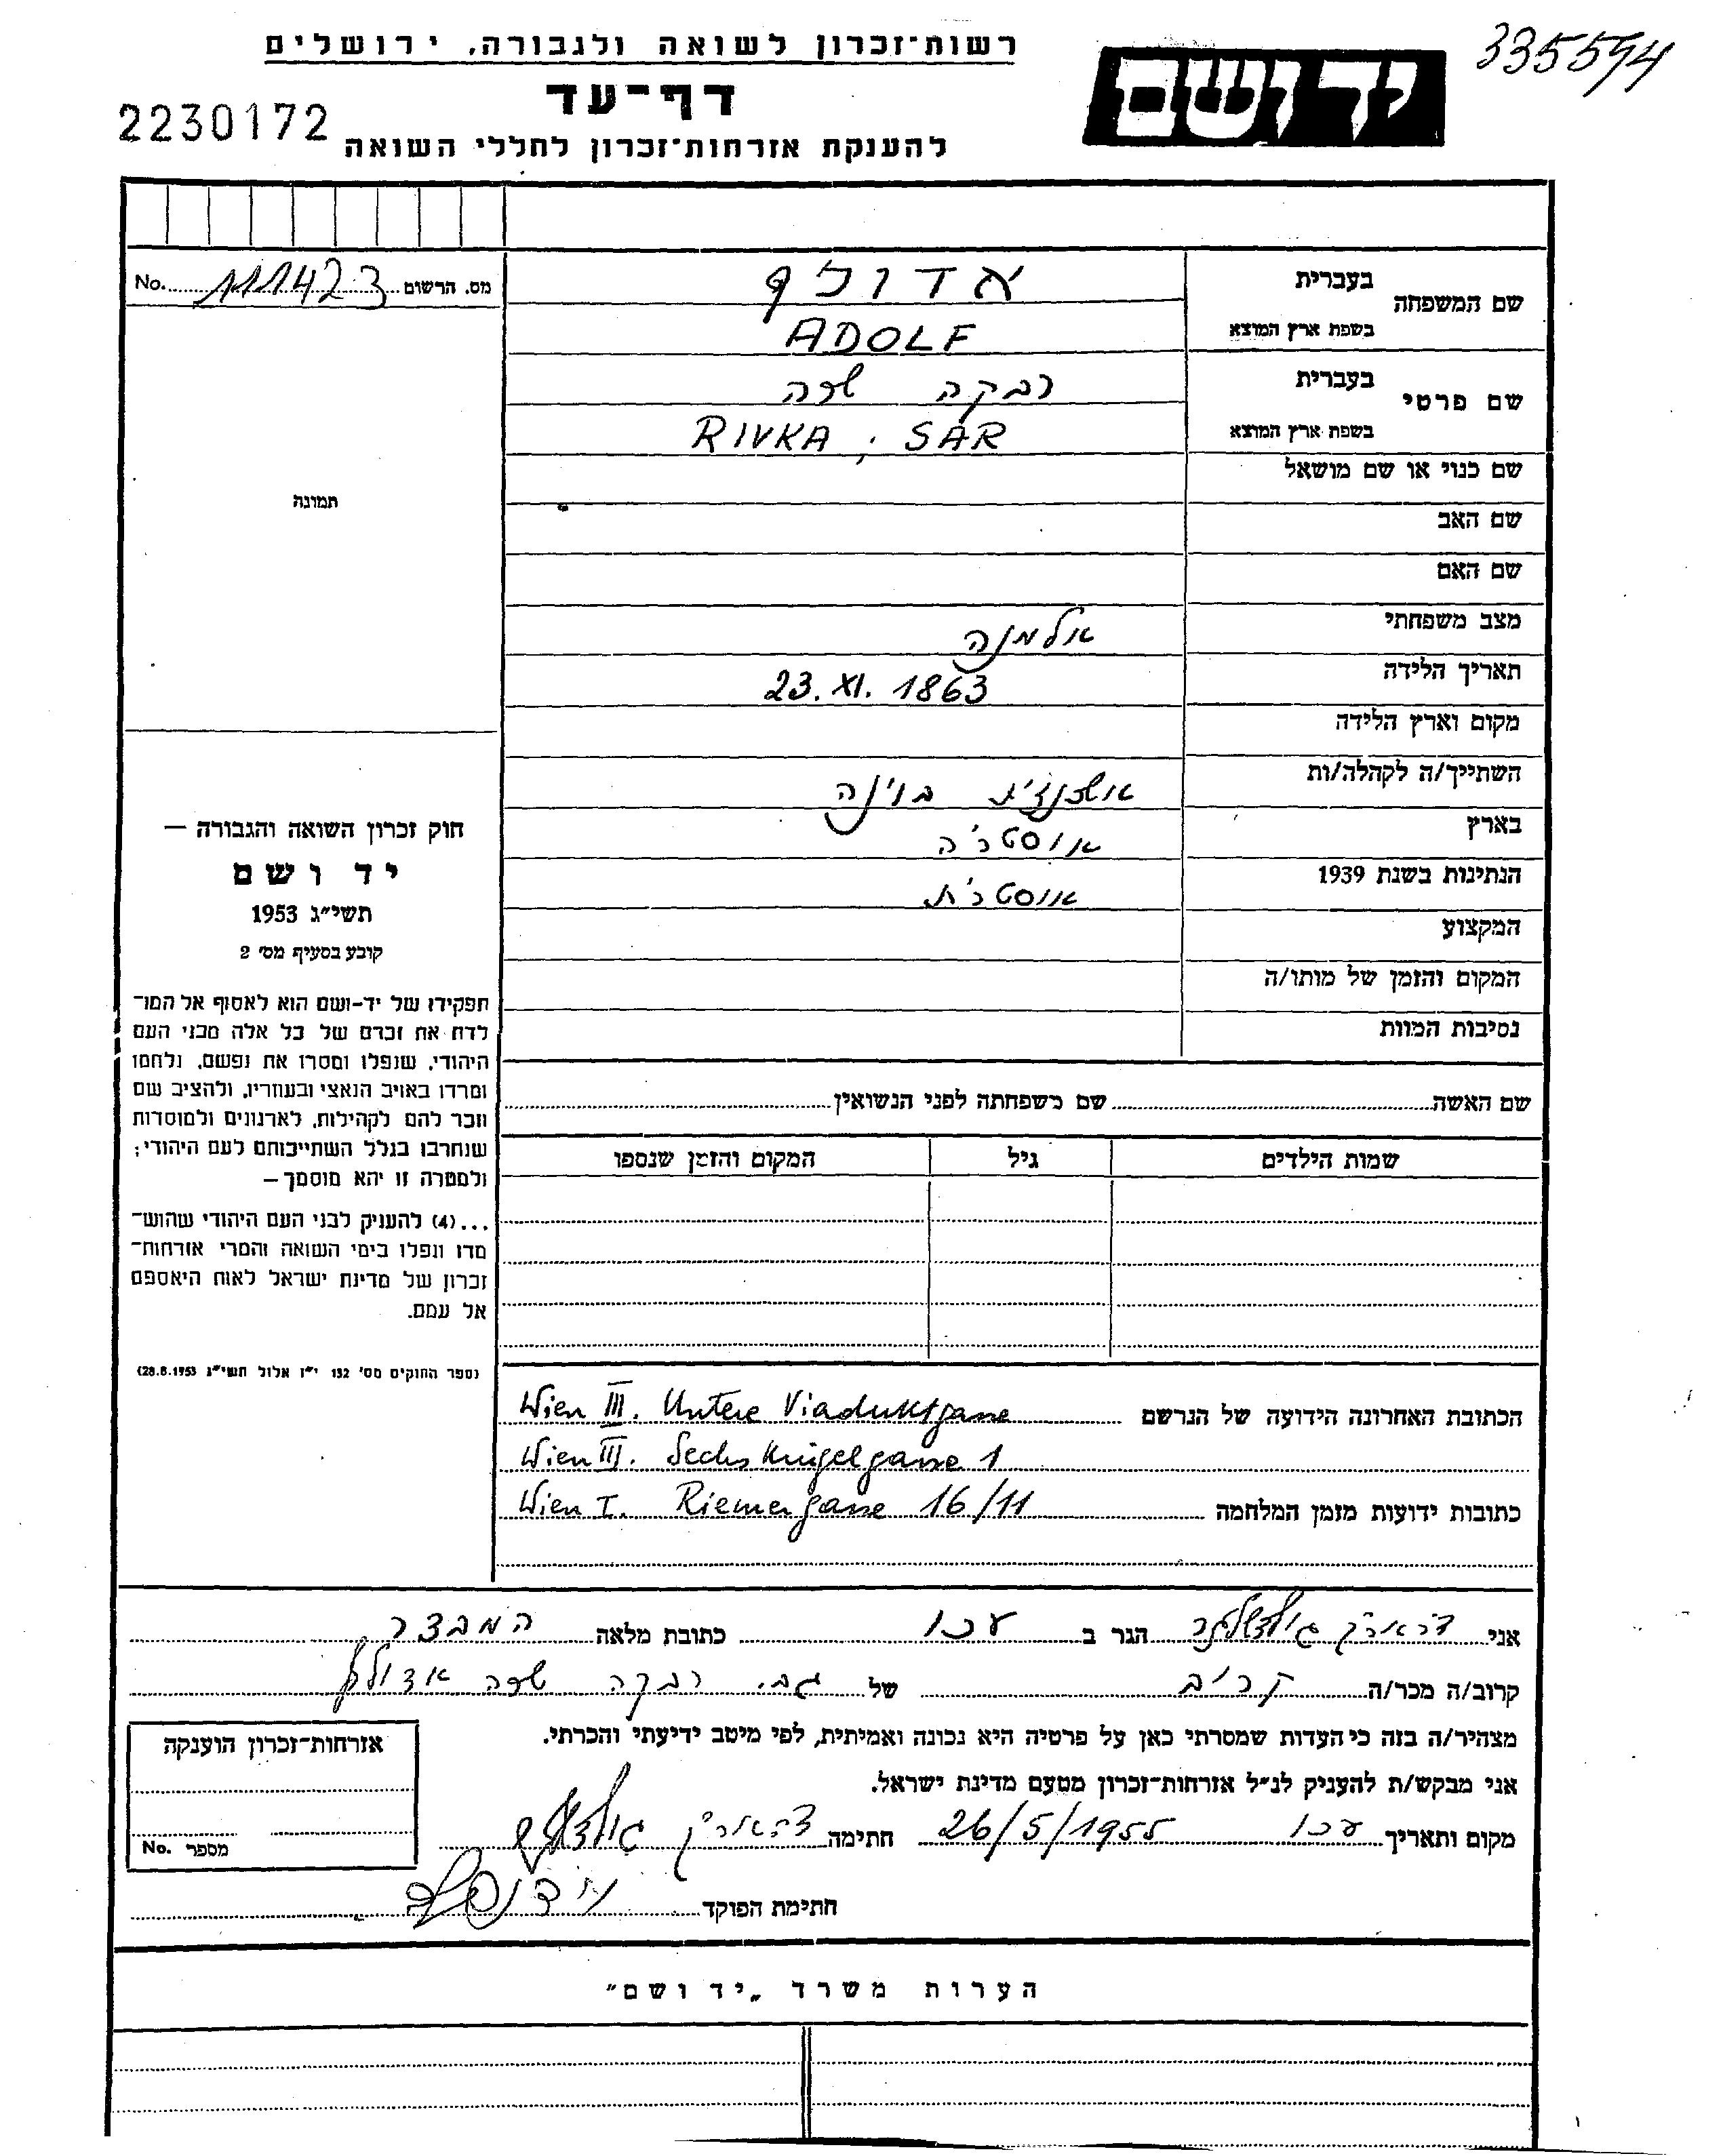 335594
רשות־זכרון לשואה ולגבורה, ירושלים
יד ושם
דף־עד
2230172
להענקת אזרחות־זכרון לחללי השואה
שם המשפחה בעברית אדולף
בשפת ארץ המוצא ADOLF
מס. הרשום 111423 No.
שם פרטי בעברית רבקה שרה
בשפת ארץ המוצא RIVKA, SAR
שם כנוי או שם מושאל
תמונה
שם האב
שם האם
מצב משפחתי אלמנה
תאריך הלידה 23. XI. 1863
מקום וארץ הלידה
השתייך/ה לקהלה/ות אשכנזית בוינה
בארץ אוסטריה
הנתינות בשנת 1939 אוסטרית
המקצוע
המקום והזמן של מותו/ה
נסיבות המוות
חוק זכרון השואה והגבורה —
יד ושם
תשי״ג 1953
קובע בסעיף מס׳ 2
תפקידו של יד-ושם הוא לאסוף אל המו־
לדת את זכרם של כל אלה מבני העם
היהודי, שנפלו ומסרו את נפשם, נלחמו
ומרדו באויב הנאצי ובעוזריו, ולהציב שם
וזכר להם לקהילות, לארגונים ולמוסדות
שנחרבו בגלל השתייכותם לעם היהודי;
ולמטרה זו יהא מוסמך —
...(4) להעניק לבני העם היהודי שהוש־
מדו ונפלו בימי השואה והמרי אזרחות־
זכרון של מדינת ישראל לאות היאספם
אל עמם.
(ספר החוקים מס׳ 132 י״ז אלול תשי״ג 28.8.1953)
שם האשה שם משפחתה לפני הנשואין
שמות הילדים גיל המקום והזמן שנספו
הכתובת האחרונה הידועה של הנרשם Wien III. Untere Viaduktgasse
Wien III. Sechskrügelgasse 1
כתובות ידועות מזמן המלחמה Wien I. Riemergasse 16/11
אני הגר ב עכו כתובת מלאה המבצר
קרוב/ה מכר/ה קריב של גב. רבקה שרה אדולף
מצהיר/ה בזה כי העדות שמסרתי כאן על פרטיה היא נכונה ואמיתית, לפי מיטב ידיעתי והכרתי.
אני מבקש/ת להעניק לנ״ל אזרחות־זכרון מטעם מדינת ישראל.
מקום ותאריך עכו 26/5/1955 חתימה
חתימת הפוקד
אזרחות־זכרון הוענקה
מספר No.
הערות משרד „יד ושם״